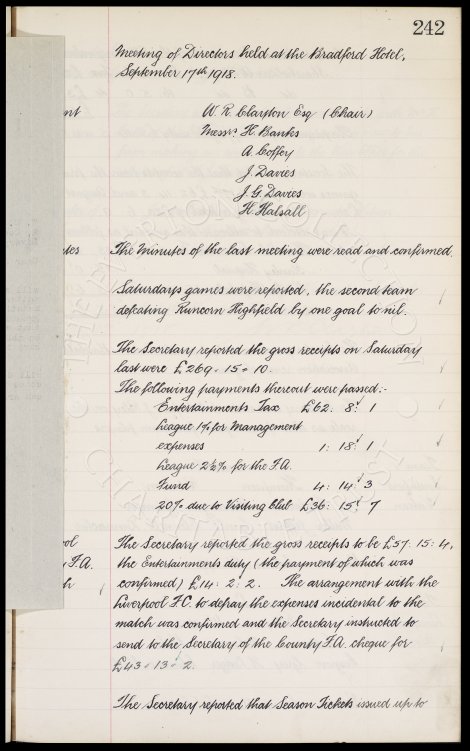 242
Meeting of Directors held at the Bradford Hotel,
September 17th 1918.
W. R. Clayton Esq (Chair)
Messrs. H. Banks
A. Coffey
J. Davies
J. G. Davies
H. Halsall
The Minutes of the last meeting were read and confirmed.
Saturdays games were reported, the second team
defeating Runcorn Highfield by one goal to nil.
The Secretary reported the gross receipts on Saturday
last were £269 . 15 . 10 .
The following payments thereout were passed:-
Entertainments Tax £62. 8. 1
League 1% for Management
expenses 1: 18. 1
League 2½% for the F.A.
Fund 4: 14. 3
20% due to Visiting Club £36: 15. 7
The Secretary reported the gross receipts to be £57: 15: 4,
F.A. the Entertainments duty (the payment of which was
confirmed) £14: 2: 2. The arrangement with the
Liverpool F.C. to defray the expenses incidental to the
match was confirmed and the Secretary instructed to
send to the Secretary of the County F.A. cheque for
£43 . 13 . 2
The Secretary reported that Season Tickets issued up to